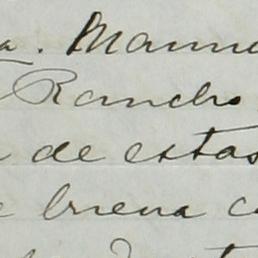 a. Manue
Rancho
de estas
e buena c